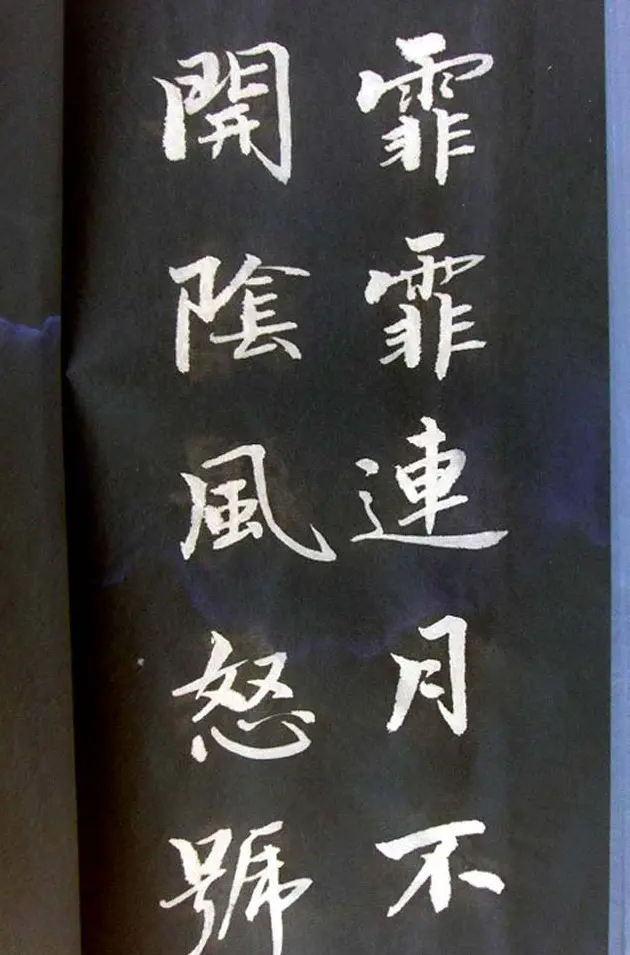 霏霏連月不
開陰風怒號